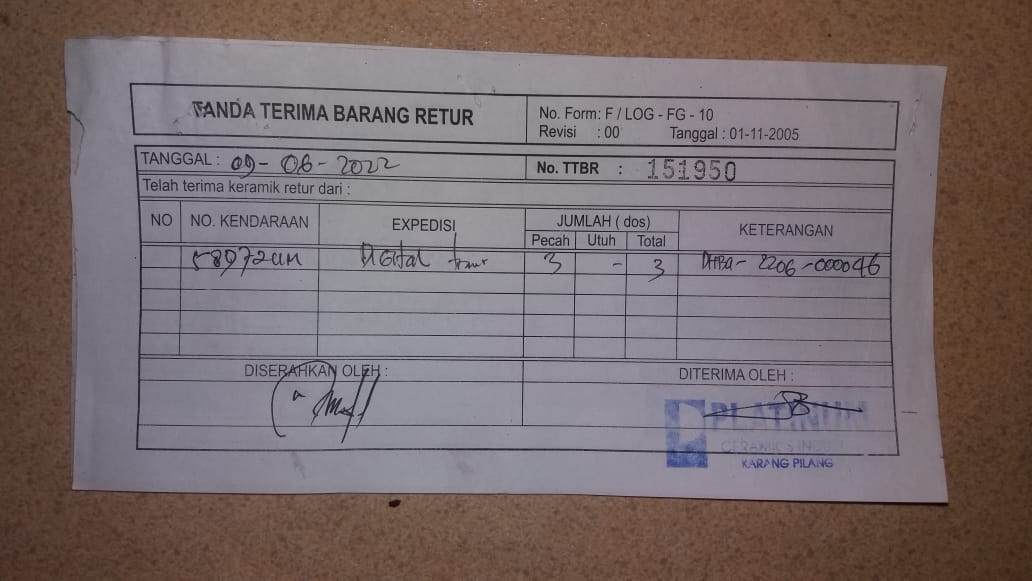 TANDA TERIMA BARANG RETUR
No. Form: F / LOG - FG - 10
Revisi : 00 Tanggal : 01-11-2005
TANGGAL : 09-06-2022
No. TTBR : 151950
Telah terima keramik retur dari :
NO NO. KENDARAAN EXPEDISI JUMLAH ( dos) KETERANGAN
Pecah Utuh Total
Digital 3 - 3 2206-000046
DISERAHKAN OLEH :
DITERIMA OLEH :
PLATINUM
CERAMICS
KARANG PILANG